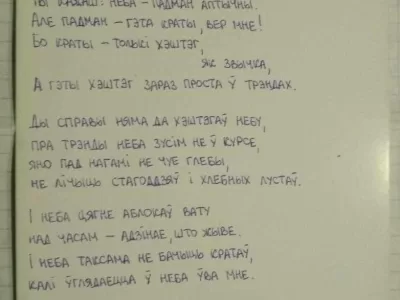 ТЫ КАЖАШ: НЕБА – ПАДМАН АПТЫЧНЫ.
АЛЕ ПАДМАН – ГЭТА КРАТЫ, ВЕР МНЕ!
БО КРАТЫ – ТОЛЬКІ ХЭШТЭГ,
ЯК ЗВЫЧКА,
А ГЭТЫ ХЭШТЭГ ЗАРАЗ ПРОСТА Ў ТРЭНДАХ.
ДЫ СПРАВЫ НЯМА ДА ХЭШТЭГАЎ НЕБУ,
ПРА ТРЭНДЫ НЕБА ЗУСІМ НЕ Ў КУРСЕ,
ЯНО ПАД НАГАМІ НЕ ЧУЕ ГЛЕБЫ,
НЕ ЛІЧЫЦЬ СТАГОДДЗЯЎ І ХЛЕБНЫХ ЛУСТАЎ.
І НЕБА ЦЯГНЕ АБЛОКАЎ ВАТУ
НАД ЧАСАМ – АДЗІНАЕ, ШТО ЖЫВЕ.
І НЕБА ТАКСАМА НЕ БАЧЫЦЬ КРАТАЎ,
КАЛІ ЎГЛЯДАЕЦЦА Ў НЕБА ЎВА МНЕ.